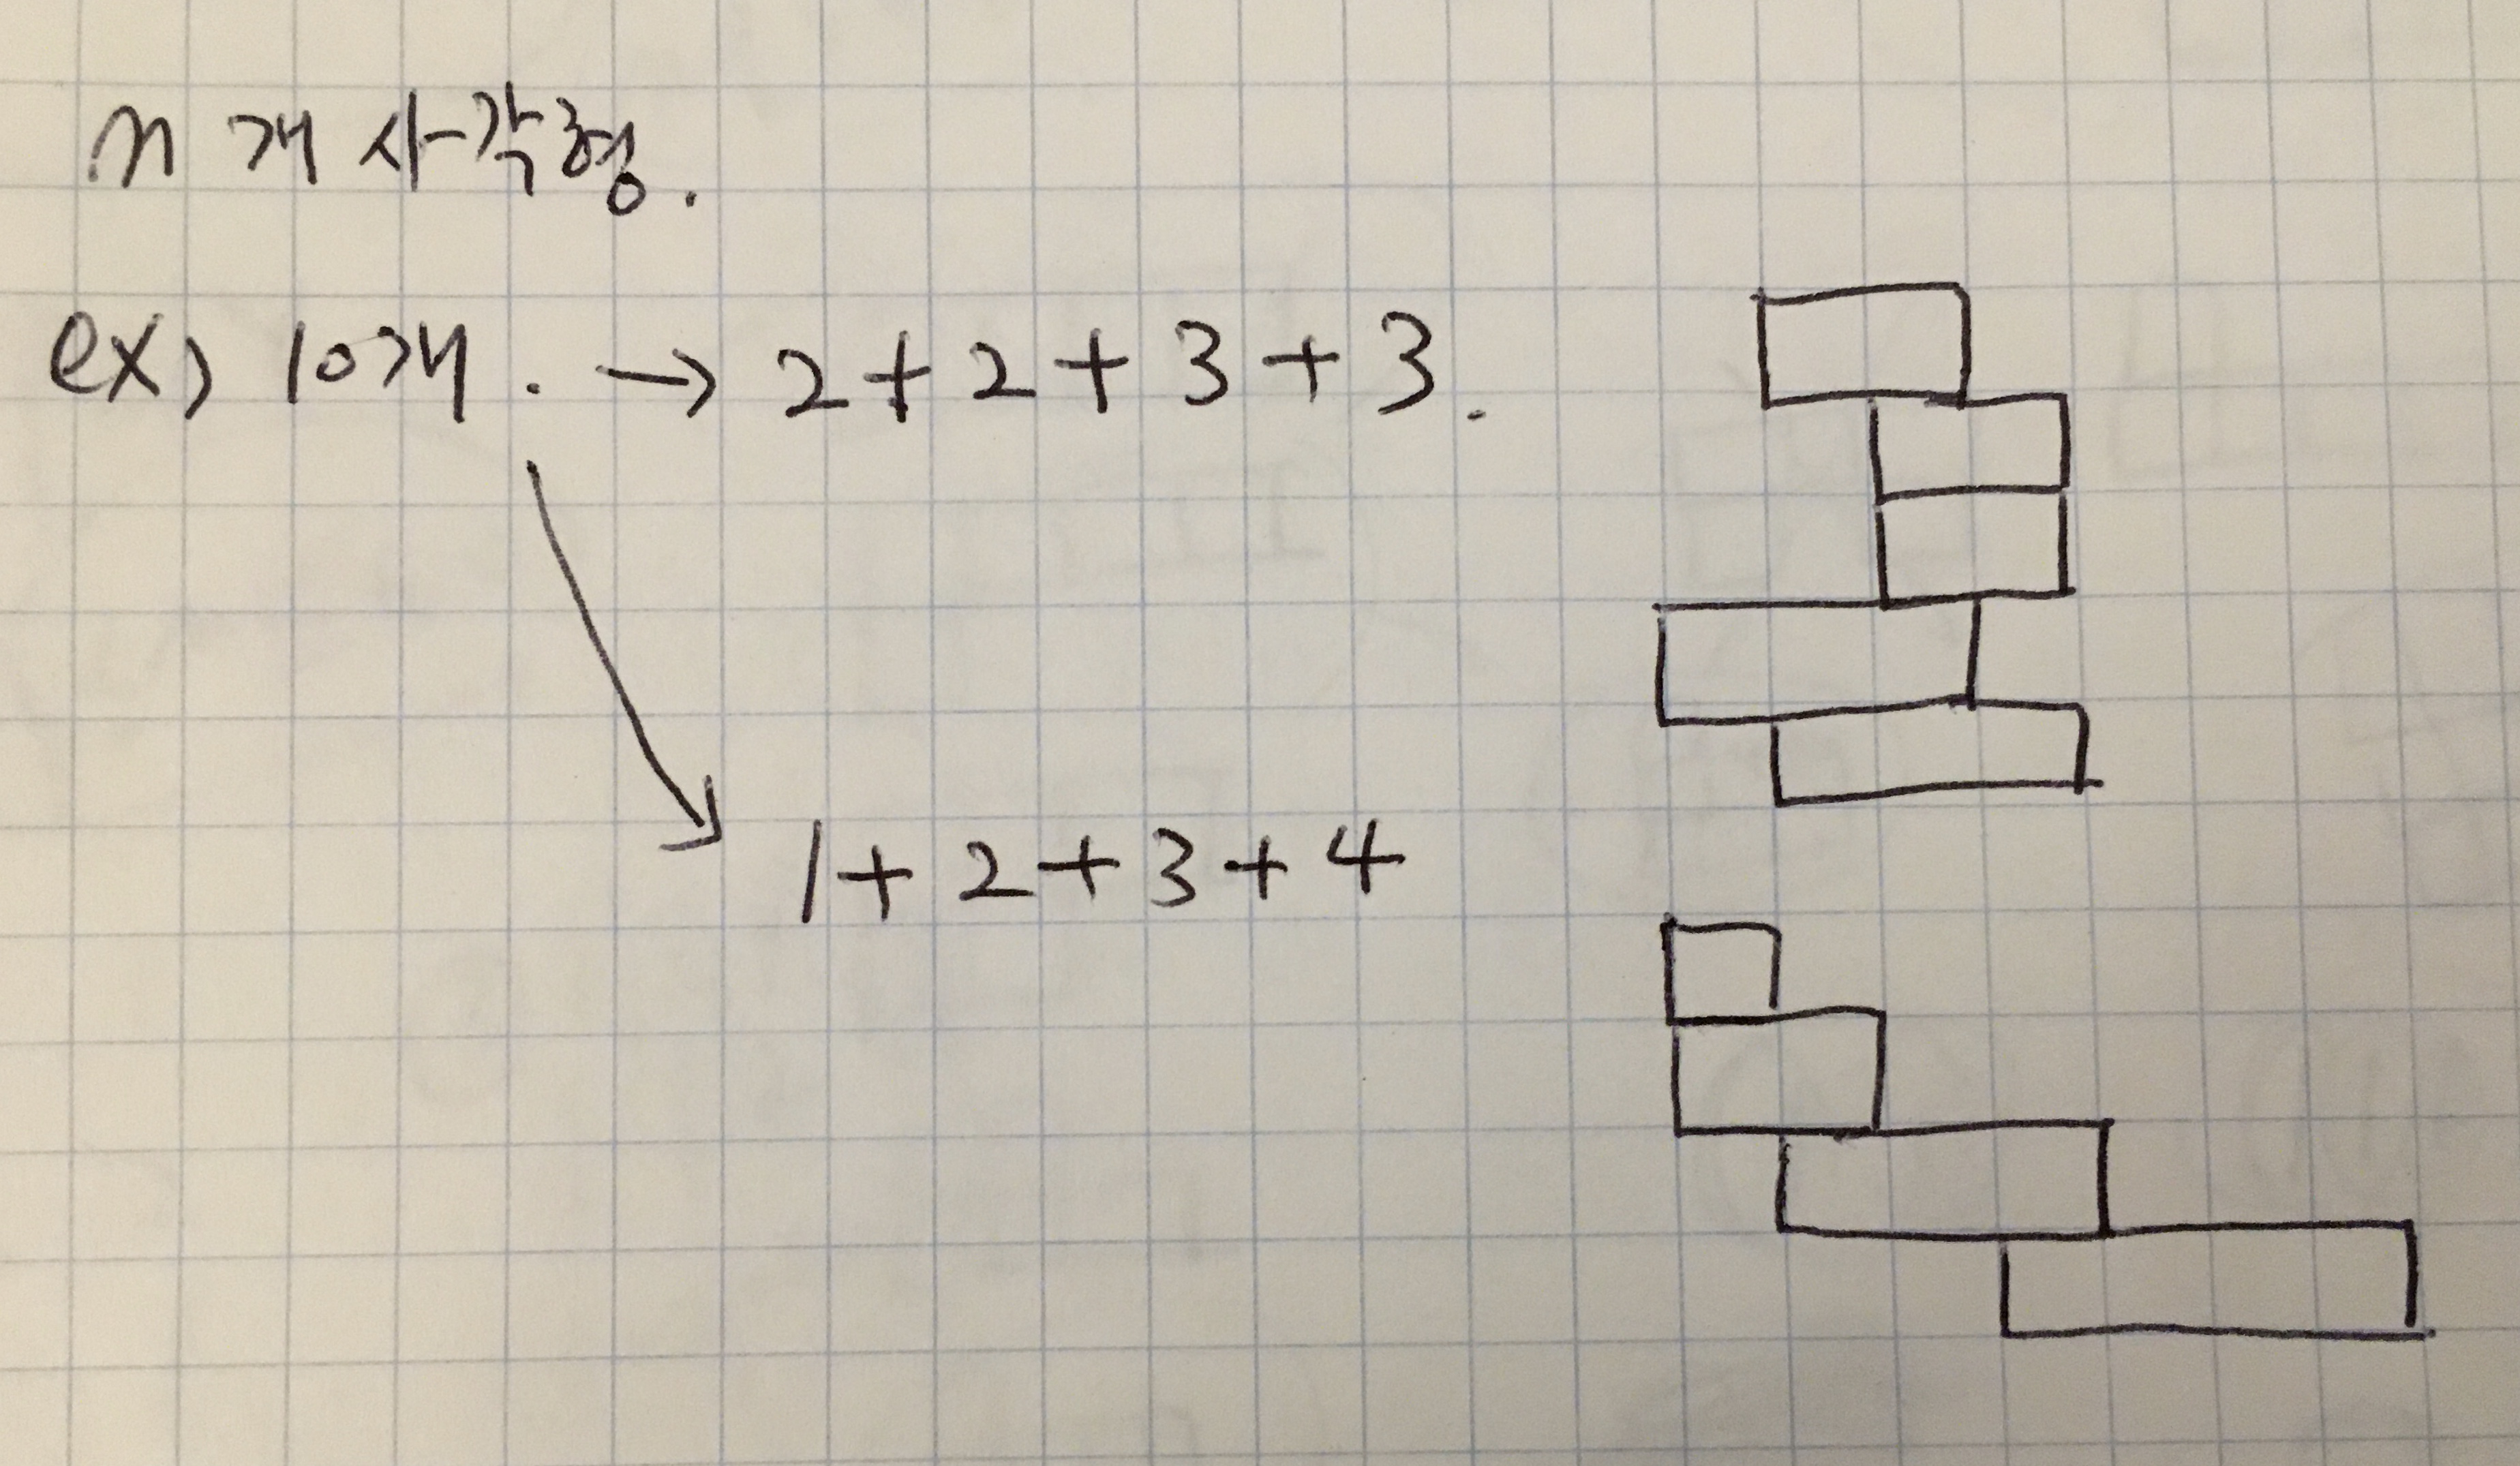 n개 사각형.
ex) 10개. → 2+2+3+3.
1+2+3+4